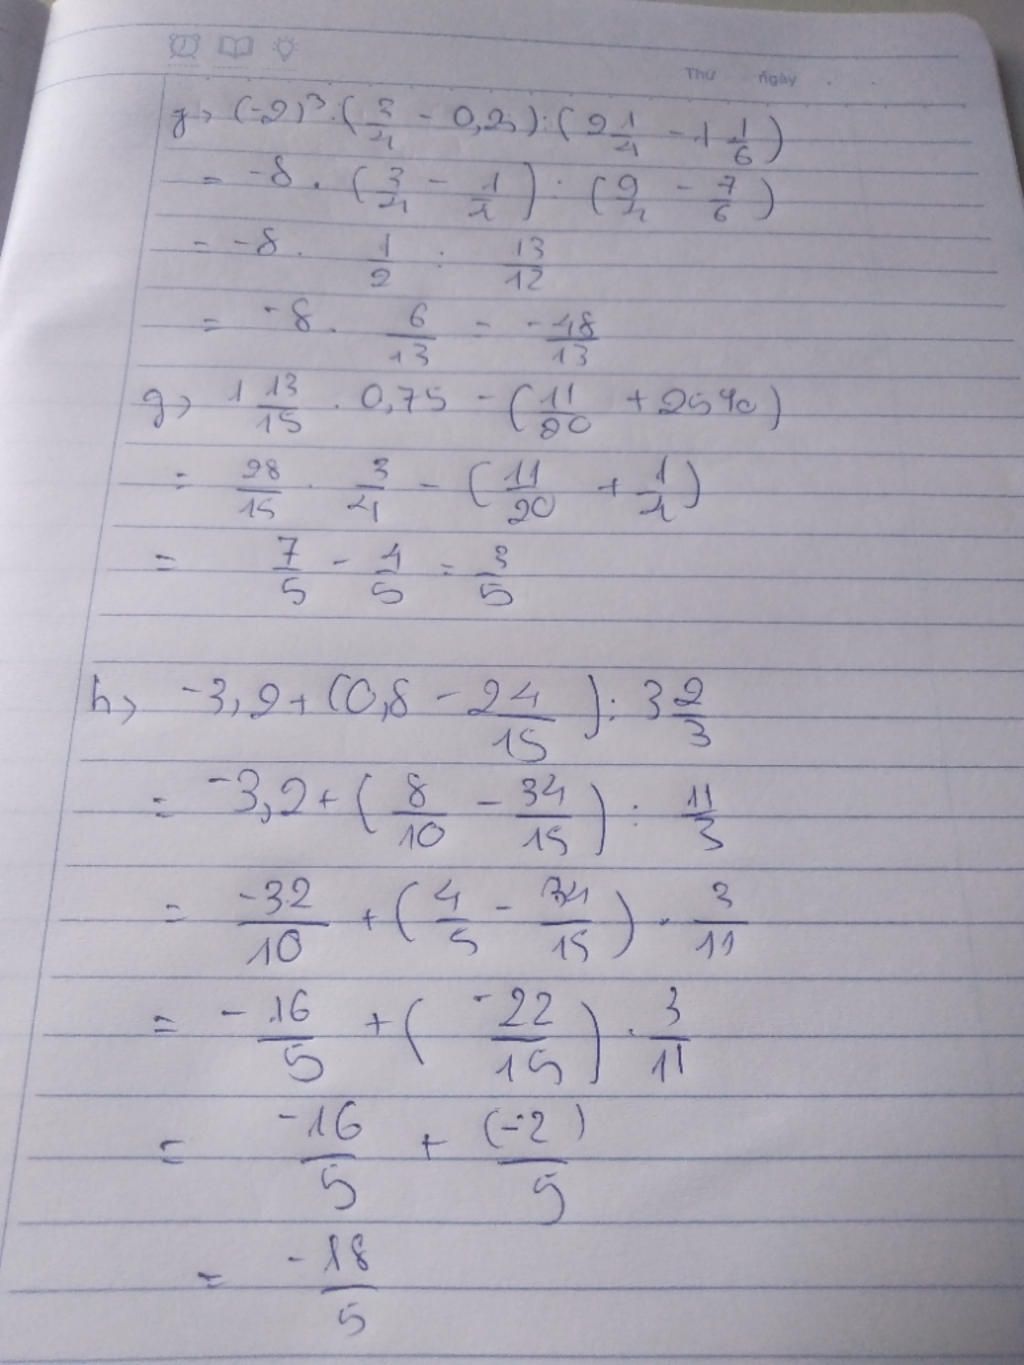 Thứ ngày
g, (-2)³ . (3/4 - 0,25) : (2 1/4 - 1 1/6)
= -8 . (3/4 - 1/4) : (9/4 - 7/6)
= -8 . 1/2 : 13/12
= -8 . 6/13 = -48/13
g, 1 13/15 . 0,75 - (11/20 + 25%)
= 28/15 . 3/4 - (11/20 + 1/4)
= 7/5 - 4/5 = 3/5
h, -3,2 + (0,8 - 2 4/15) : 3 2/3
= -3,2 + (8/10 - 34/15) : 11/3
= -32/10 + (4/5 - 34/15) . 3/11
= -16/5 + (-22/15) . 3/11
= -16/5 + (-2)/5
= -18/5